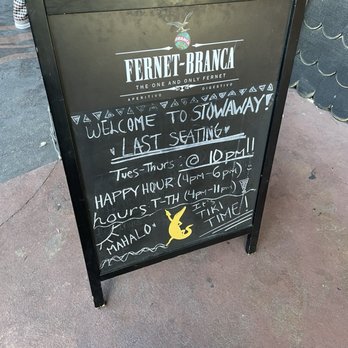 FERNET-BRANCA
THE ONE AND ONLY FERNET
APERITIVO DIGESTIVO
WELCOME TO STOWAWAY!
LAST SEATING
TUES-THURS: @ 10PM!!
HAPPY HOUR (4PM-6PM)
hours T-TH (4PM-11PM)
MAHALO
IT'S
TIKI
TIME!